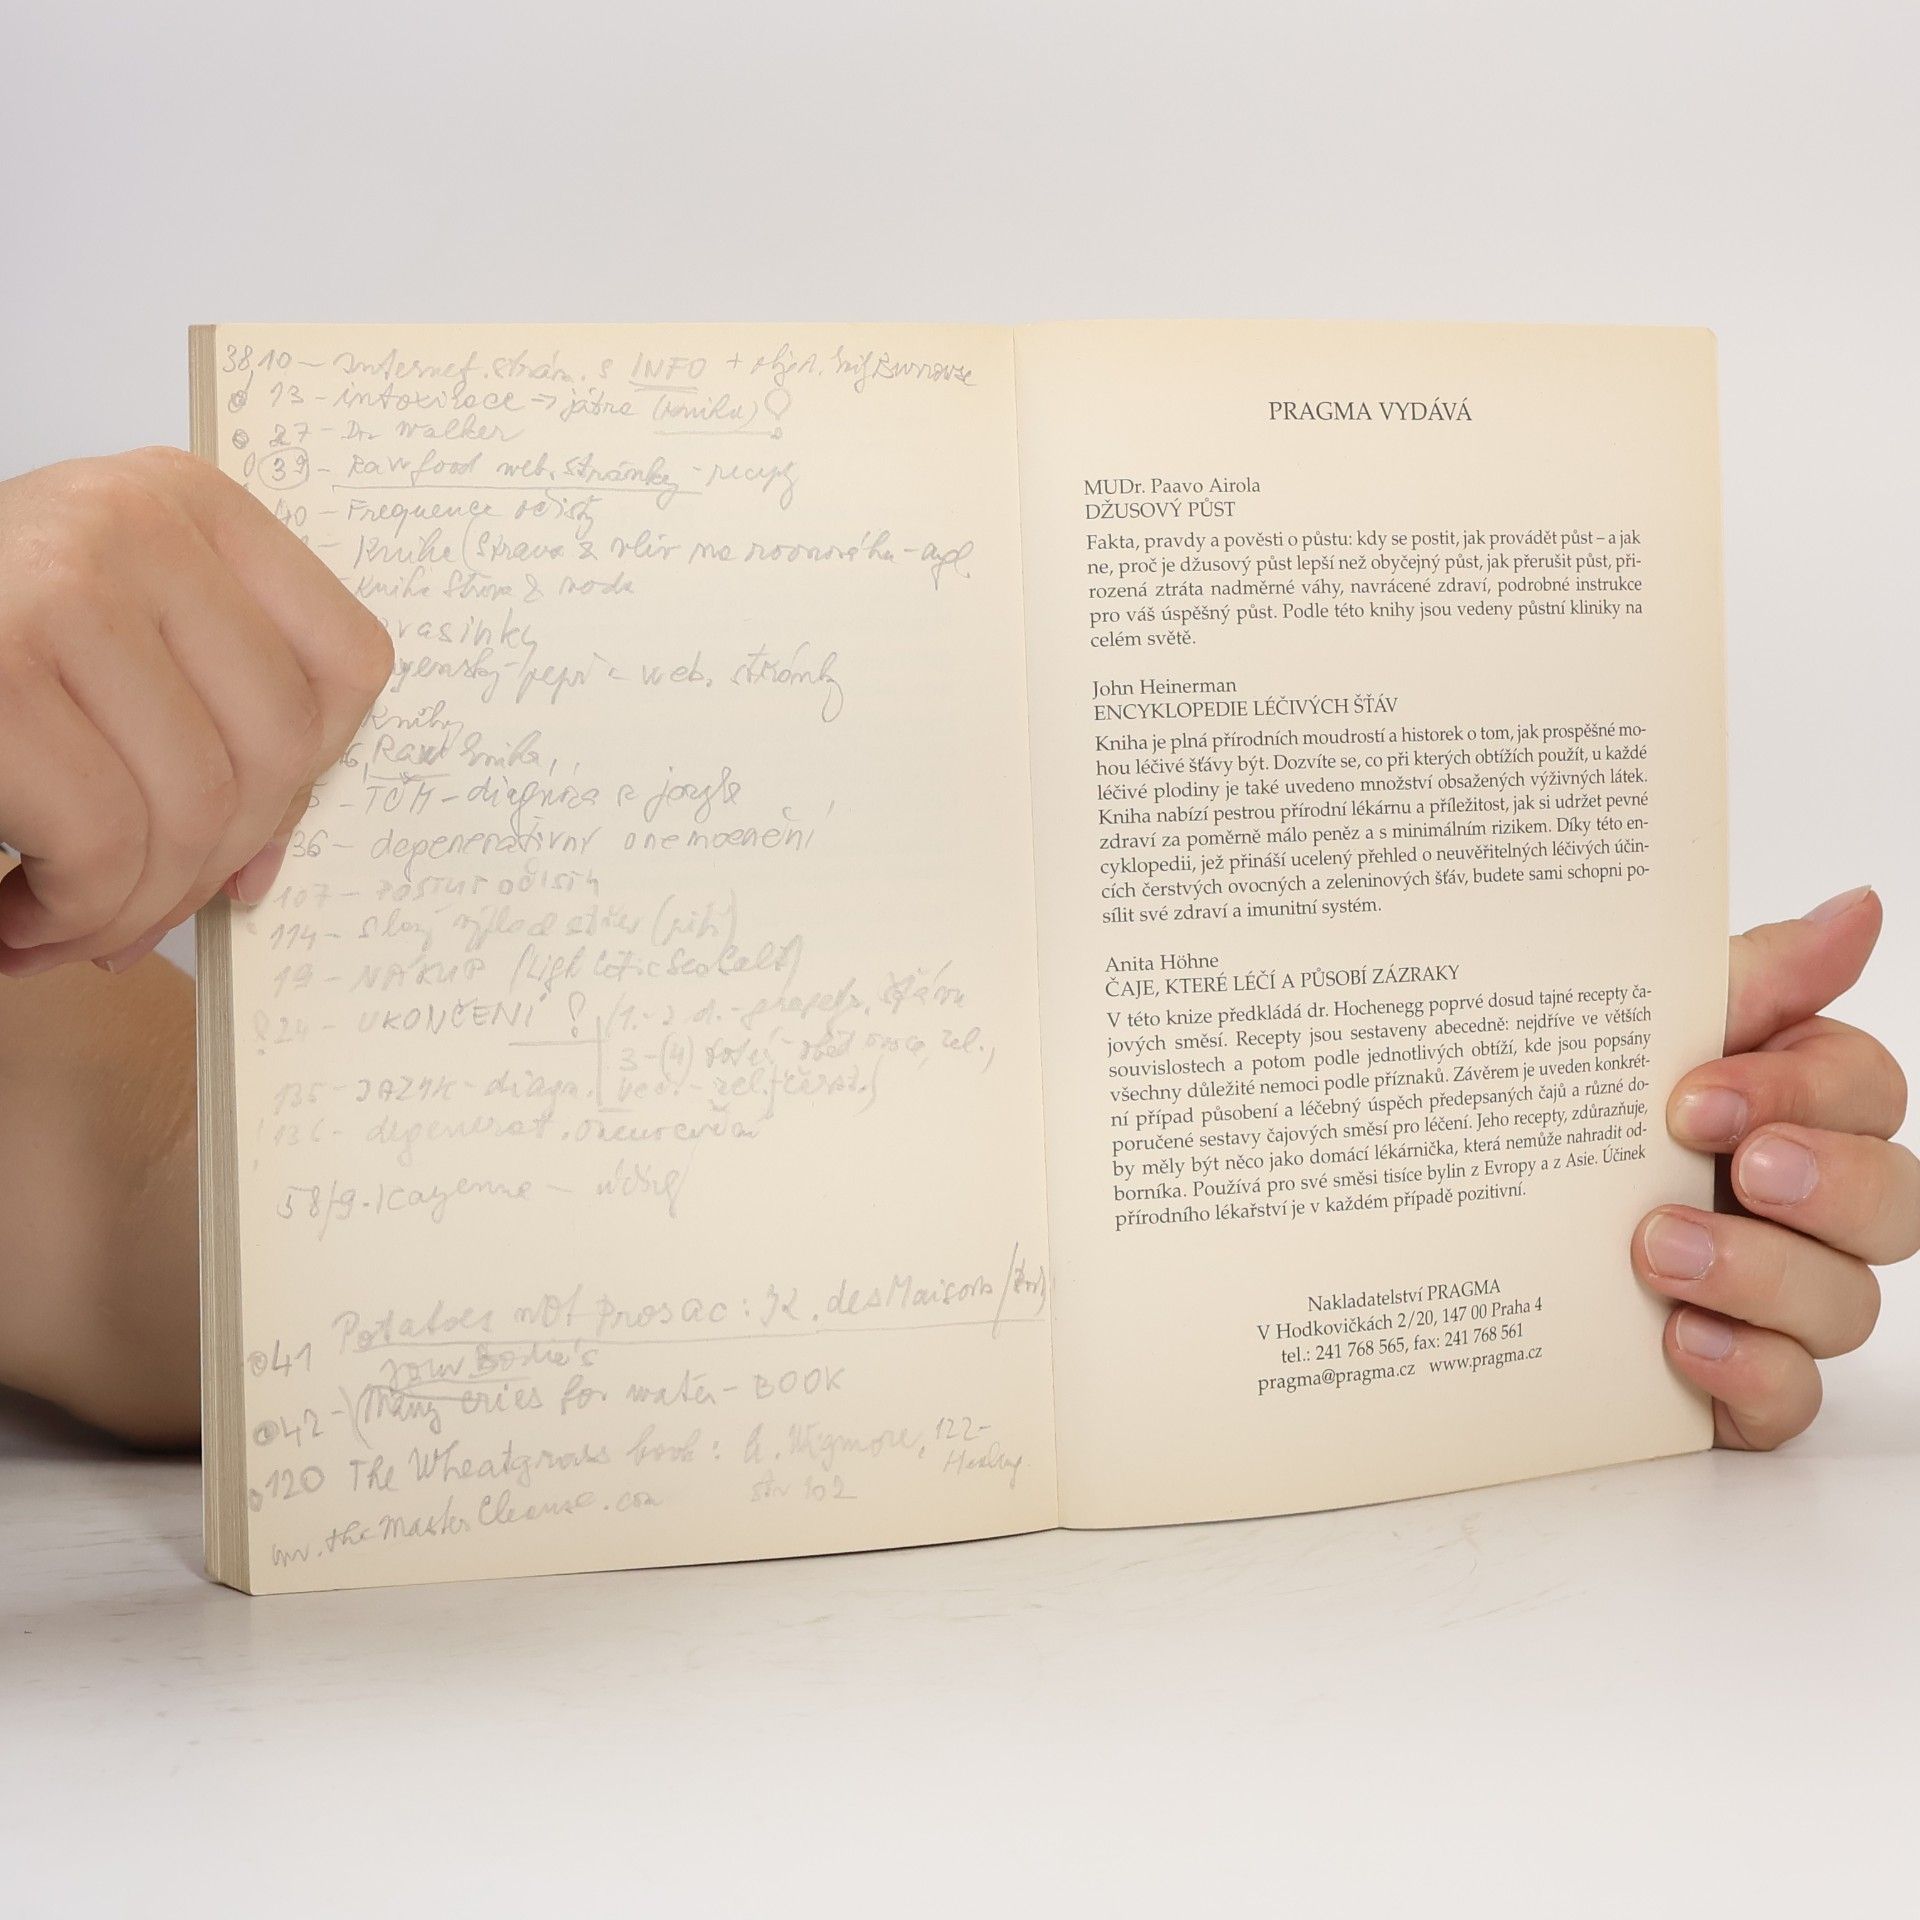 38,10 - Internet. strán. s INFO +
13 - intoxikace → játra (kniha)
27 - Dr Walker
39 - Raw food web. stránky - recepty
40 - Frequence očisty
Kniha (Strava & vliv na rovnováhu - angl.
Kniha Strava & voda
vasinky
yensky pepř - web. stránky
Knihy
Raw kniha,
TČM - diagnóza z jazyka
36 - degenerativní onemocnění
107 - POSTUP OČISTY
114 - slaný výplach střev (pití)
19 - NÁKUP
24 - UKONČENÍ ! /1.-2. d. -
3 - (4)
135 - JAZYK - diagn.
136 - degenerat. onemocnění
58/9 - Kayenne - účinky
Potatoes not Prosac : des Maisons
41 your Bodie's
42 - Many cries for water - BOOK
120 The Wheatgrass book : A. Wigmore, 122-
Healing
str 102
www.theMasterCleanse.com
PRAGMA VYDÁVÁ
MUDr. Paavo Airola
DŽUSOVÝ PŮST
Fakta, pravdy a pověsti o půstu: kdy se postit, jak provádět půst – a jak
ne, proč je džusový půst lepší než obyčejný půst, jak přerušit půst, při-
rozená ztráta nadměrné váhy, navrácené zdraví, podrobné instrukce
pro váš úspěšný půst. Podle této knihy jsou vedeny půstní kliniky na
celém světě.
John Heinerman
ENCYKLOPEDIE LÉČIVÝCH ŠŤÁV
Kniha je plná přírodních moudrostí a historek o tom, jak prospěšné mo-
hou léčivé šťávy být. Dozvíte se, co při kterých obtížích použít, u každé
léčivé plodiny je také uvedeno množství obsažených výživných látek.
Kniha nabízí pestrou přírodní lékárnu a příležitost, jak si udržet pevné
zdraví za poměrně málo peněz a s minimálním rizikem. Díky této en-
cyklopedii, jež přináší ucelený přehled o neuvěřitelných léčivých účin-
cích čerstvých ovocných a zeleninových šťáv, budete sami schopni po-
sílit své zdraví a imunitní systém.
Anita Höhne
ČAJE, KTERÉ LÉČÍ A PŮSOBÍ ZÁZRAKY
V této knize předkládá dr. Hochenegg poprvé dosud tajné recepty ča-
jových směsí. Recepty jsou sestaveny abecedně: nejdříve ve větších
souvislostech a potom podle jednotlivých obtíží, kde jsou popsány
všechny důležité nemoci podle příznaků. Závěrem je uveden konkrét-
ní případ působení a léčebný úspěch předepsaných čajů a různé do-
poručené sestavy čajových směsí pro léčení. Jeho recepty, zdůrazňuje,
by měly být něco jako domácí lékárnička, která nemůže nahradit od-
borníka. Používá pro své směsi tisíce bylin z Evropy a z Asie. Účinek
přírodního lékařství je v každém případě pozitivní.
Nakladatelství PRAGMA
V Hodkovičkách 2/20, 147 00 Praha 4
tel.: 241 768 565, fax: 241 768 561
pragma@pragma.cz www.pragma.cz